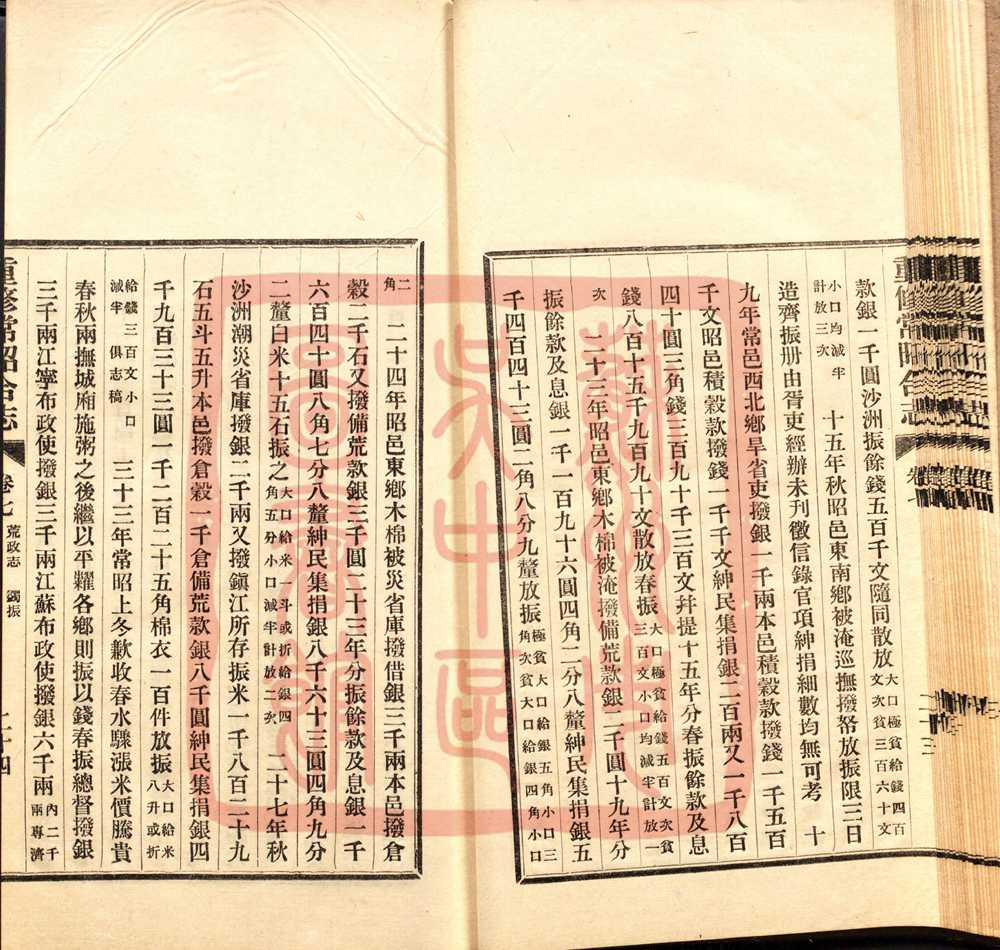 款銀一千圓沙洲振餘錢五百千文隨同散放大口極貧給錢四百文次貧三百六十文
小口均減半計放三次　十五年秋昭邑東南鄉被淹巡撫撥帑放振限三日
造齊振册由胥吏經辦未刊徵信錄官項紳捐細數均無可考　十
九年常邑西北鄉旱省吏撥銀一千兩本邑積穀款撥錢一千五百
千文昭邑積穀款撥錢一千千文紳民集捐銀二百兩又一千八百
四十圓三角錢三百九十千三百文幷提十五年分春振餘款及息
錢八百十五千九百九十文散放春振大口極貧給錢五百文次貧三百文小口均減半計放一
次　二十三年昭邑東鄉木棉被淹撥備荒款銀二千圓十九年分
振餘款及息銀一千一百九十六圓四角二分八釐紳民集捐銀五
千四百四十三圓二角八分九釐放振極貧大口給銀五角小口三角次貧大口給銀四角小口
二角　二十四年昭邑東鄉木棉被災省庫撥借銀三千兩本邑撥倉
穀二千石又撥備荒款銀三千圓二十三年分振餘款及息銀一千
六百四十圓八角七分八釐紳民集捐銀八千六十三圓四角九分
二釐白米十五石振之大口給米一斗或折給銀四角五分小口減半計放二次　二十七年秋
沙洲潮災省庫撥銀二千兩又撥鎭江所存振米一千八百二十九
石五斗五升本邑撥倉穀一千倉備荒款銀八千圓紳民集捐銀四
千九百三十三圓一千二百二十五角棉衣一百件放振大口給米八升或折
給錢三百文小口減半俱志稿　三十三年常昭上冬歉收春水驟漲米價騰貴
春秋兩撫城廂施粥之後繼以平糶各鄉則振以錢春振總督撥銀
三千兩江寧布政使撥銀三千兩江蘇布政使撥銀六千兩內二千兩專濟
重修常昭合志
卷七
荒政志　蠲振
二十四
重修常昭合志